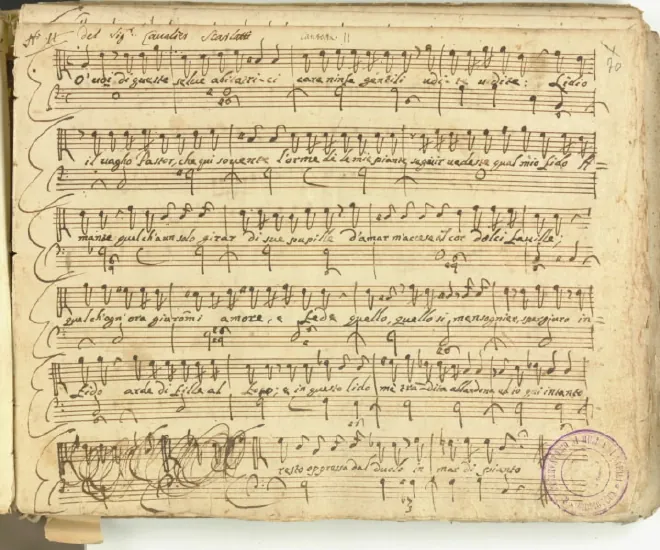 No. 11 del Sigr. Cavalier Scarlatti Cantata 11
70
O' voi di queste selve abitatrici care ninfe gentili udite udite: Lidio
il vago Pastor, che qui sovente l'orme de le mie piante seguir vedeste quel mio Lido A=
mante quel ch'a un solo girar di sue pupille d'amar m'accese il cor dolci faville;
quel ch'ogn'ora giurommi amore, e fede quello, quello sì, mensognier, spergiuro in
Lido arde di Lilla al e in questo lido me tradita abbandona ed io qui intanto
resto oppressa dal duolo in mar di pianto